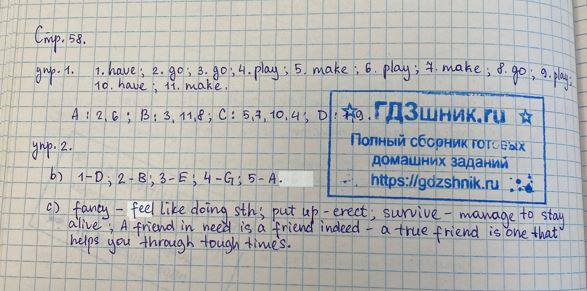 Стр. 58.
упр. 1. 1. have; 2. go; 3. go; 4. play; 5. make; 6. play; 7. make; 8. go; 9. play;
10. have; 11. make.
A: 2, 6; B: 3, 11, 8; C: 5, 7, 10, 4; D: 9.
упр. 2.
b) 1-D; 2-B; 3-E; 4-G; 5-A.
c) fancy - feel like doing sth; put up - erect, survive - manage to stay
alive; A friend in need is a friend indeed - a true friend is one that
helps you through tough times.
ГДЗшник.ru
Полный сборник готовых
домашних заданий
https://gdzshnik.ru